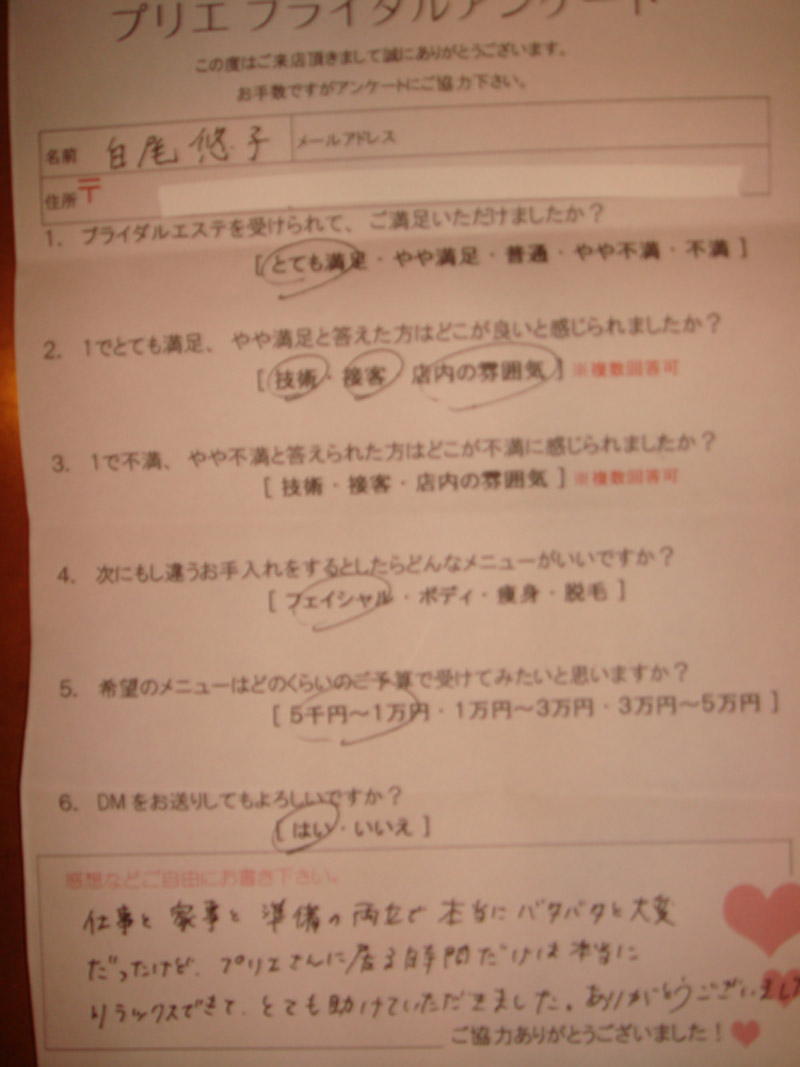 プリエ ブライダルアンケート
この度はご来店頂きまして誠にありがとうございます。
お手数ですがアンケートにご協力下さい。
名前 白尾 悠子 メールアドレス
住所 〒
1. ブライダルエステを受けられて、ご満足いただけましたか？
[ とても満足・やや満足・普通・やや不満・不満 ]
2. 1でとても満足、やや満足と答えた方はどこが良いと感じられましたか？
[ 技術・接客 店内の雰囲気 ] ※複数回答可
3. 1で不満、やや不満と答えられた方はどこが不満に感じられましたか？
[ 技術・接客・店内の雰囲気 ] ※複数回答可
4. 次にもし違うお手入れをするとしたらどんなメニューがいいですか？
[ フェイシャル・ボディ・痩身・脱毛 ]
5. 希望のメニューはどのくらいのご予算で受けてみたいと思いますか？
[ 5千円〜1万円・1万円〜3万円・3万円〜5万円 ]
6. DMをお送りしてもよろしいですか？
[ はい・いいえ ]
感想などご自由にお書き下さい。
仕事と 家事と 準備の両立で 本当に バタバタと大変
だったけど、プリエさんに居る時間だけは本当に
リラックスできて、とても助けていただきました。ありがとうございました
ご協力ありがとうございました！